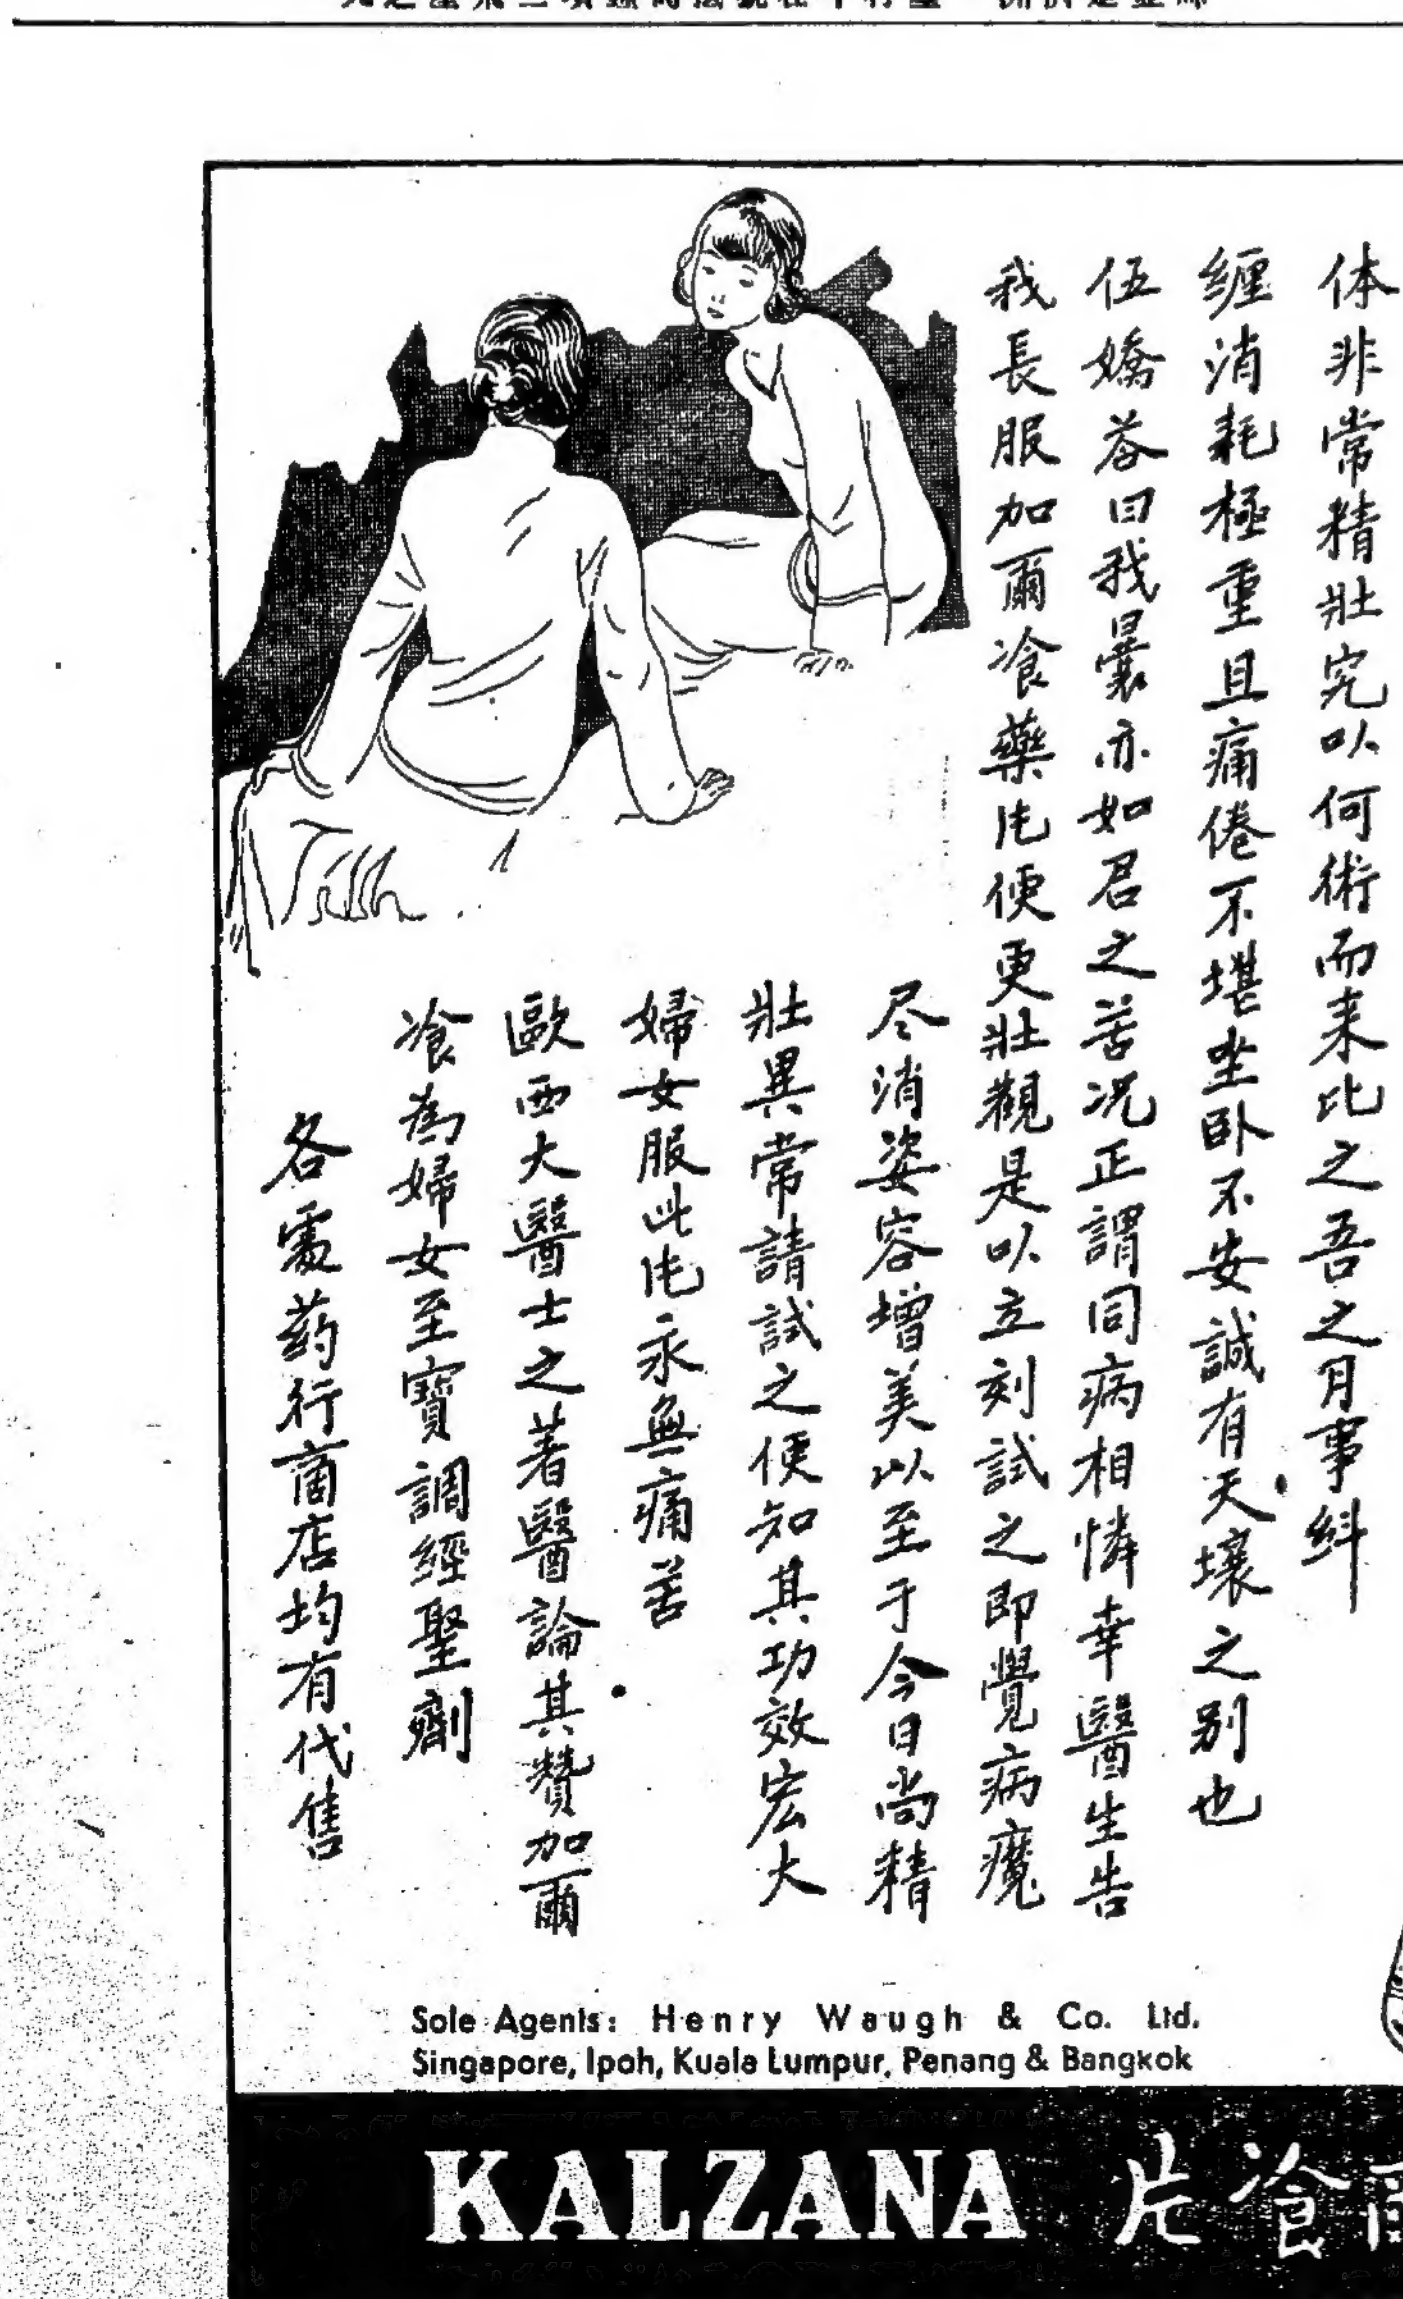 体非常精壯究以何術而来比之吾之月事糾
缠消耗極重且痛倦不堪坐卧不安誠有天壤之别也
伍嬌答曰我曩亦如君之苦况正謂同病相憐幸醫生告
我長服加爾飡藥片便更壯觀是以立刻試之即覺病魔
尽消姿容增美以至于今日尚精
壯異常請試之便知其功效宏大
婦女服此片永無痛苦
歐西大醫士之著醫論其贊加爾
飡為婦女至寶調經聖劑
各處药行商店均有代售
Sole Agents: Henry Waugh & Co. Ltd.
Singapore, Ipoh, Kuala Lumpur, Penang & Bangkok
KALZANA 片飡爾